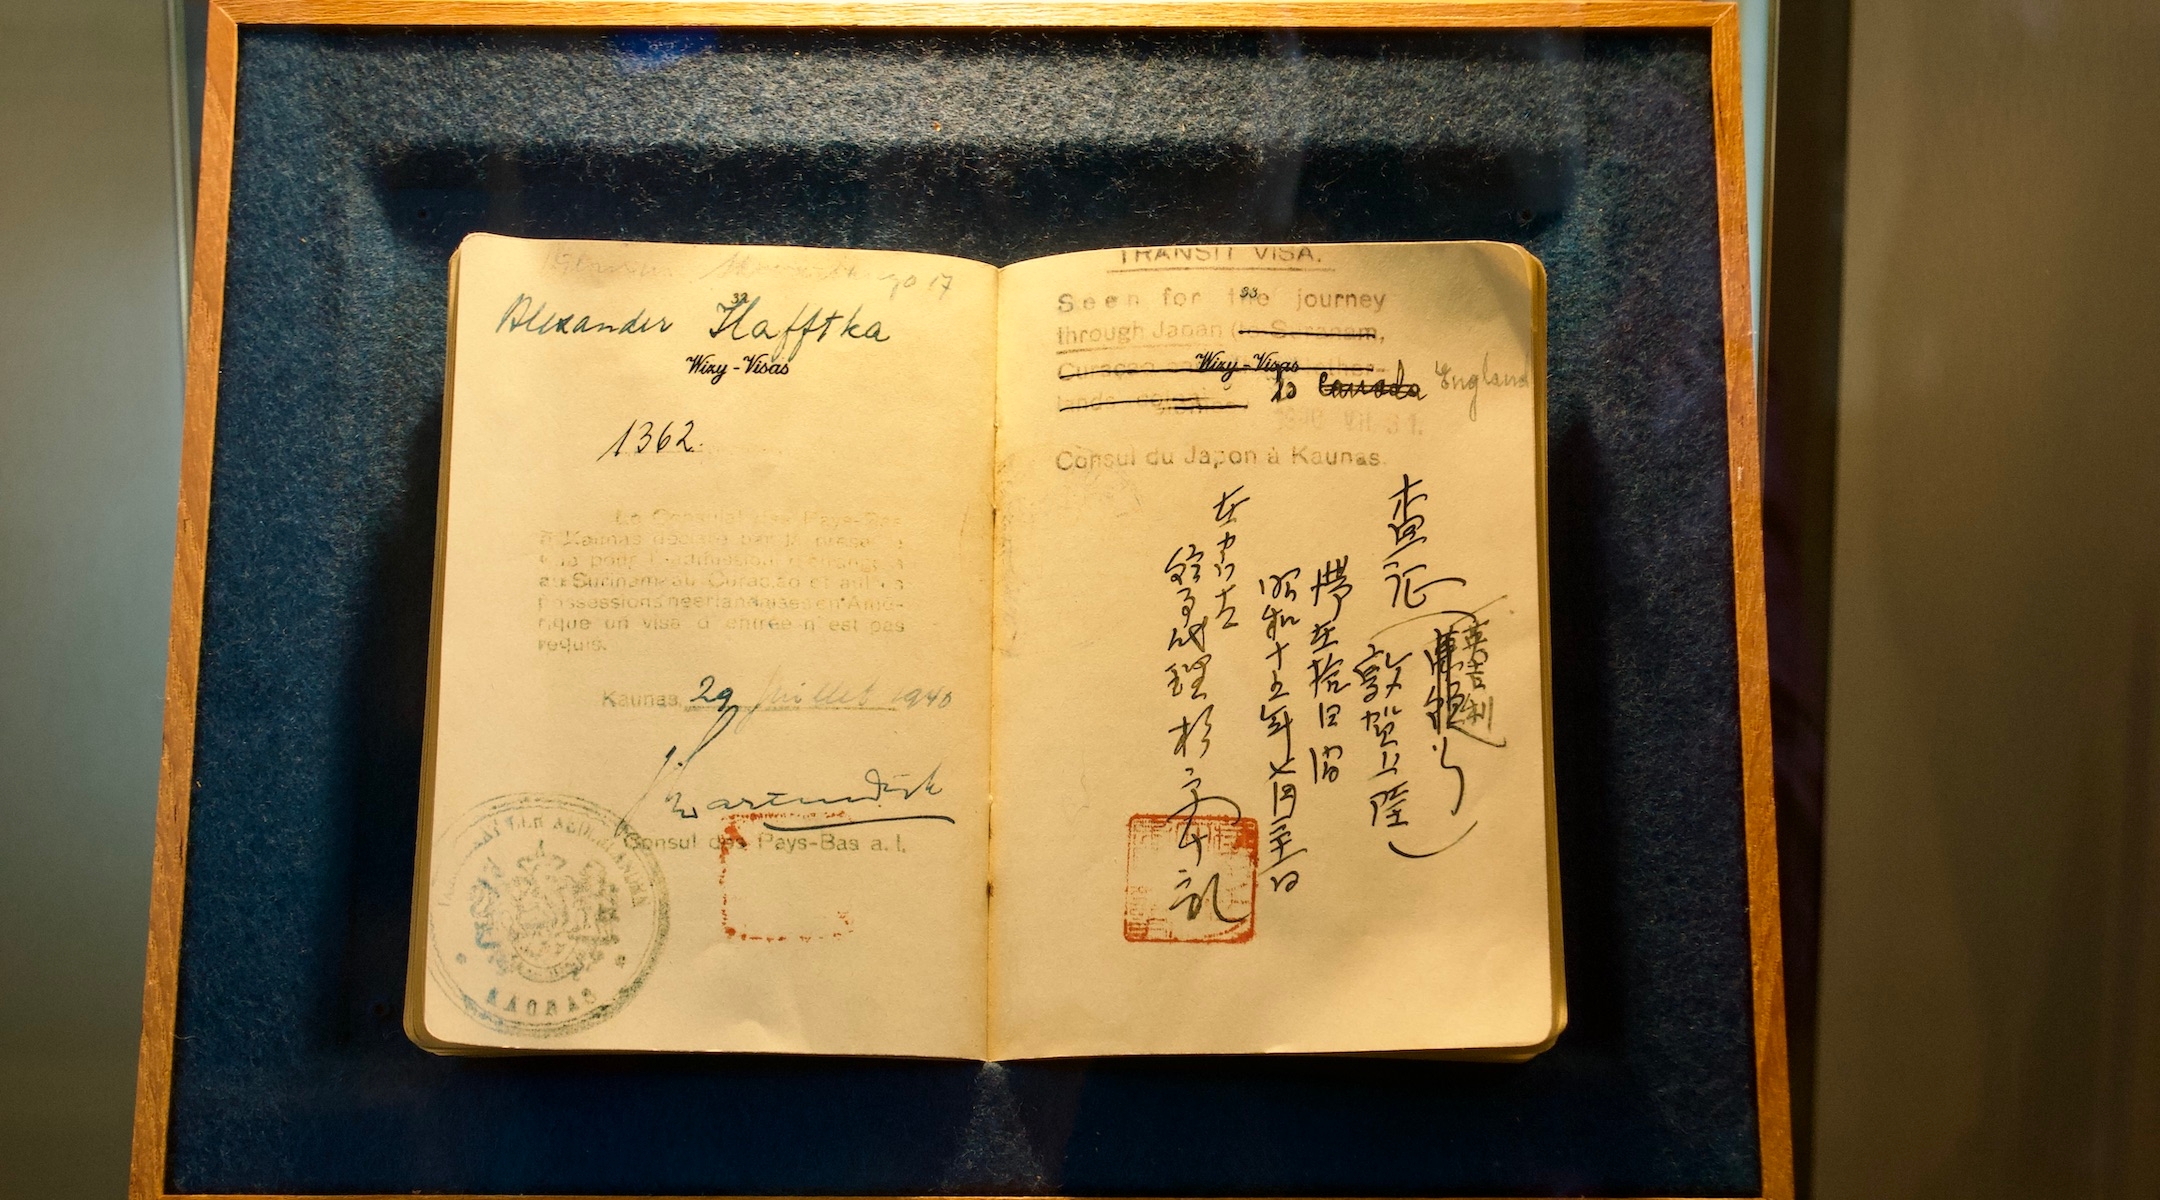 Alexander Hafftka
32
Wizy - Visas
1362.
Le Consulat des Pays-Bas
à Kaunas déclare par la présente
que pour l'admission d'étrangers
au Surinam au Curaçao et autres
possessions néerlandaises en Amé-
rique un visa d'entrée n'est pas
requis.
Kaunas, 29 Juillet 1940
Consul des Pays-Bas a. i.
TRANSIT VISA.
Seen for the journey
33
through Japan (to Suranam,
Wizy - Visas
Curaçao
to Canada England
1940 VII 31.
Consul du Japon à Kaunas.
査証
敦賀上陸
滞在拾日間
昭和十五年七月三一日
在カウナス
領事代理 杉原千畝
英吉利